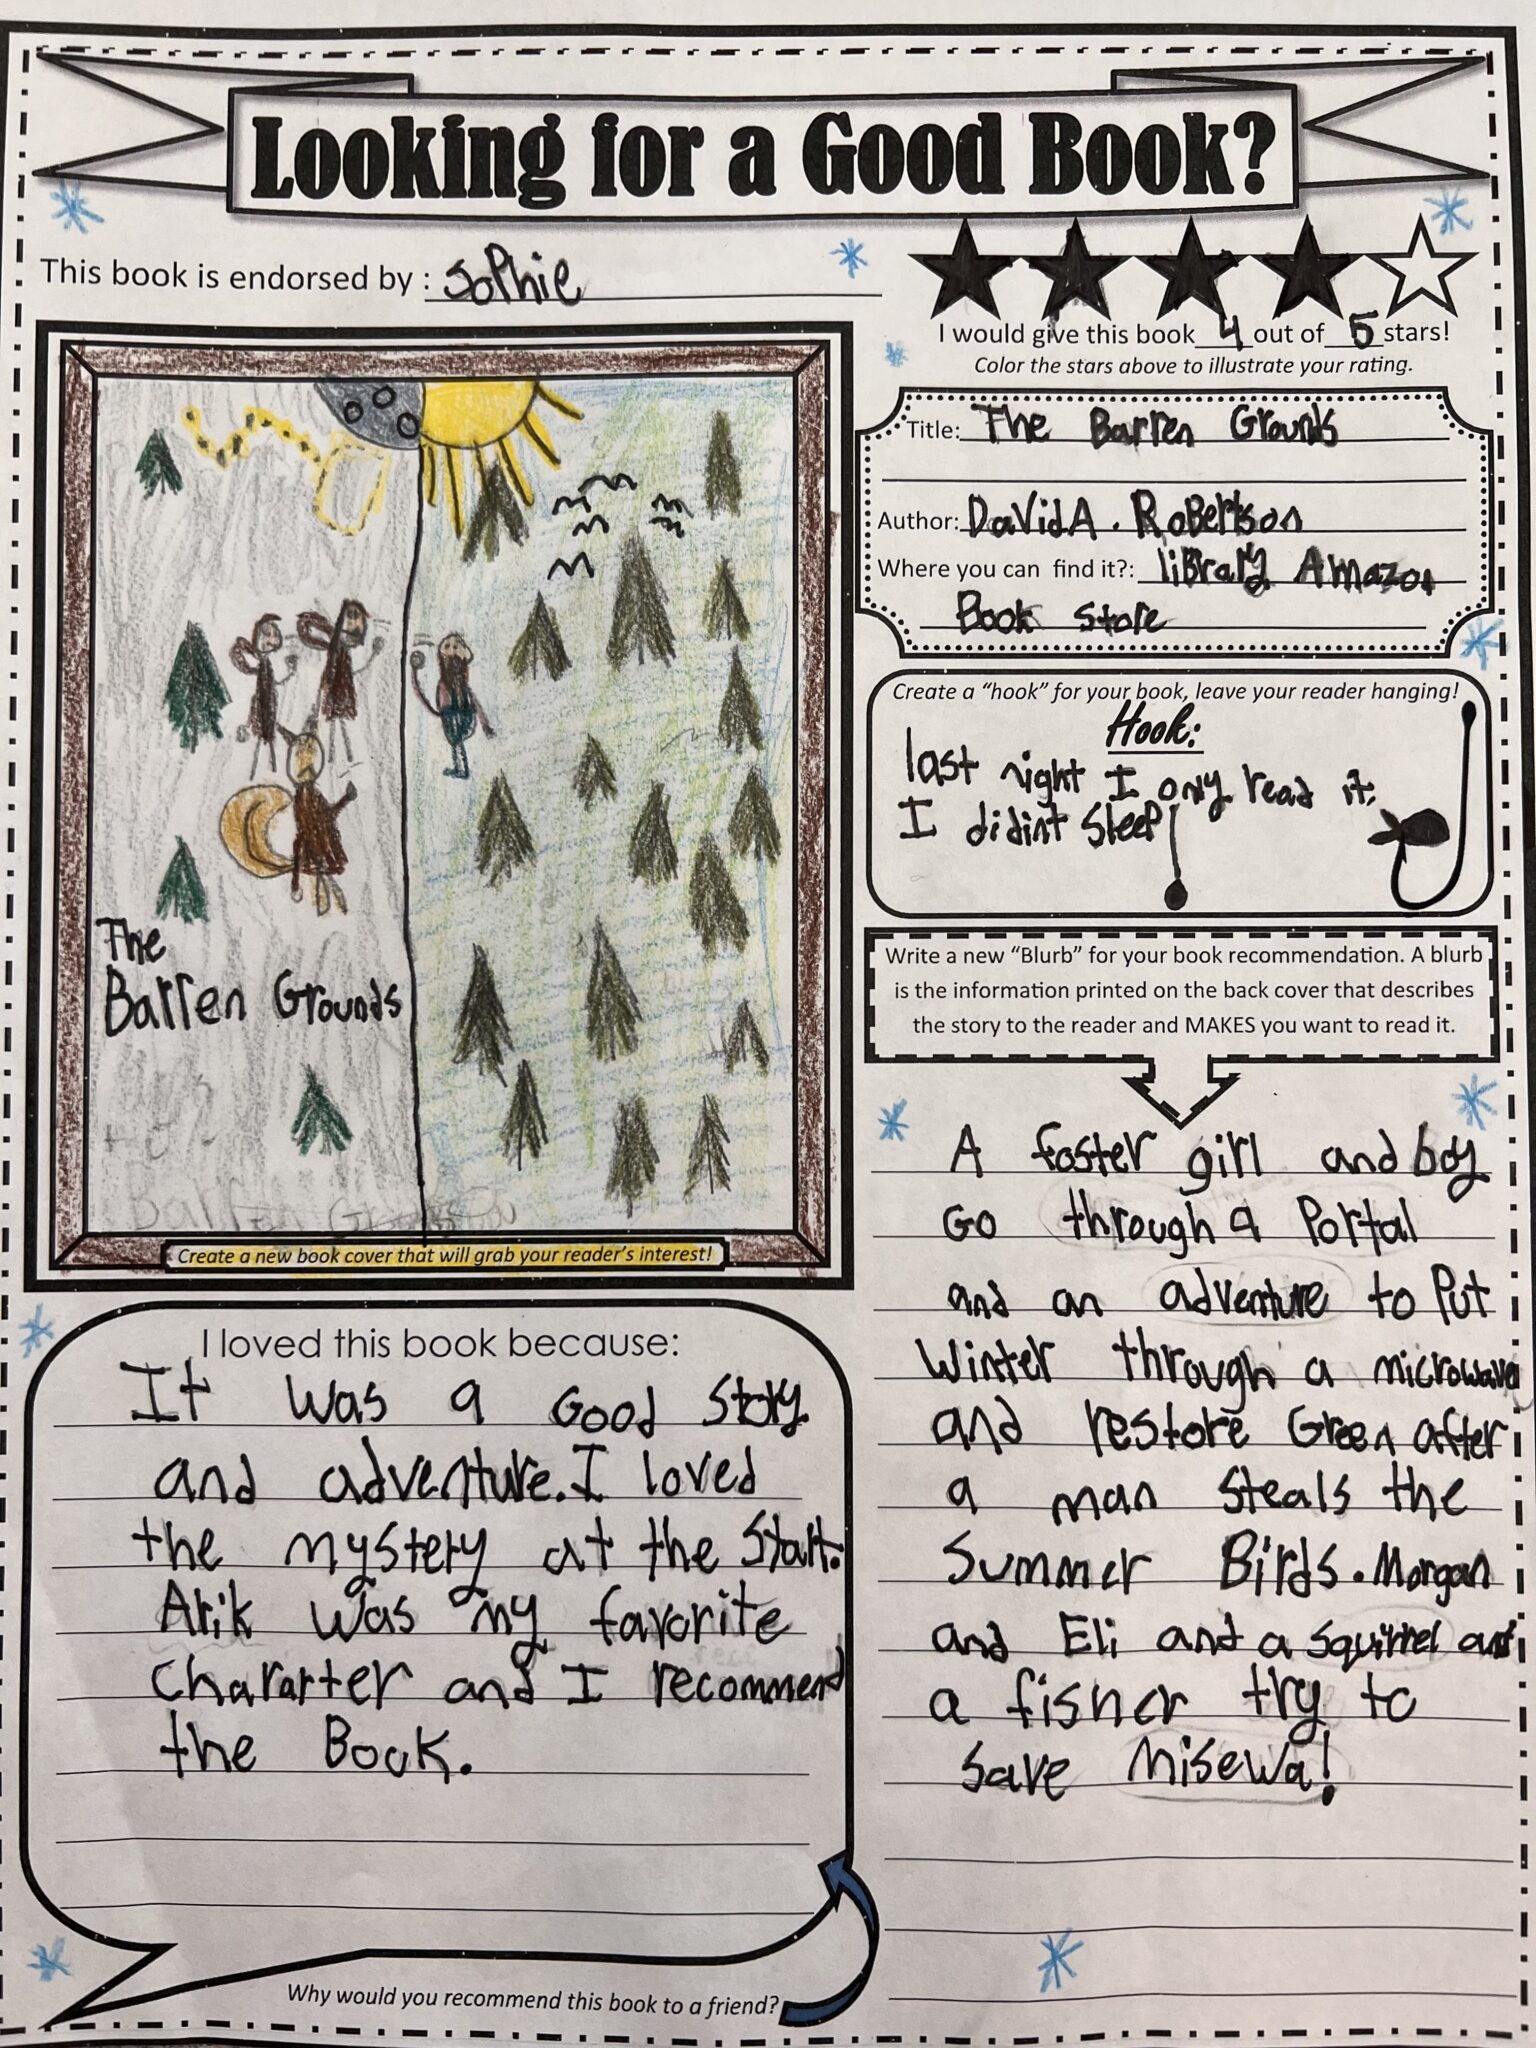 Looking for a Good Book?
This book is endorsed by : Sophie
I would give this book 4 out of 5 stars!
Color the stars above to illustrate your rating.
Title: The Barren Grounds
Author: David A. Robertson
Where you can find it?: library Amazon
Book store
Create a “hook” for your book, leave your reader hanging!
Hook:
last night I only read it.
I didint sleep
The
Barren Grounds
Barren Grounds
Create a new book cover that will grab your reader’s interest!
Write a new “Blurb” for your book recommendation. A blurb
is the information printed on the back cover that describes
the story to the reader and MAKES you want to read it.
A foster girl and boy
Go through a Portal
and an adventure to Put
Winter through a microwave
and restore Green after
a man steals the
Summer Birds. Morgan
and Eli and a squirrel and
a fisher try to
save Misewa!
I loved this book because:
It was a Good story
and adventure. I loved
the mystery at the start.
Arik was my favorite
Chararter and I recommend
the Book.
Why would you recommend this book to a friend?